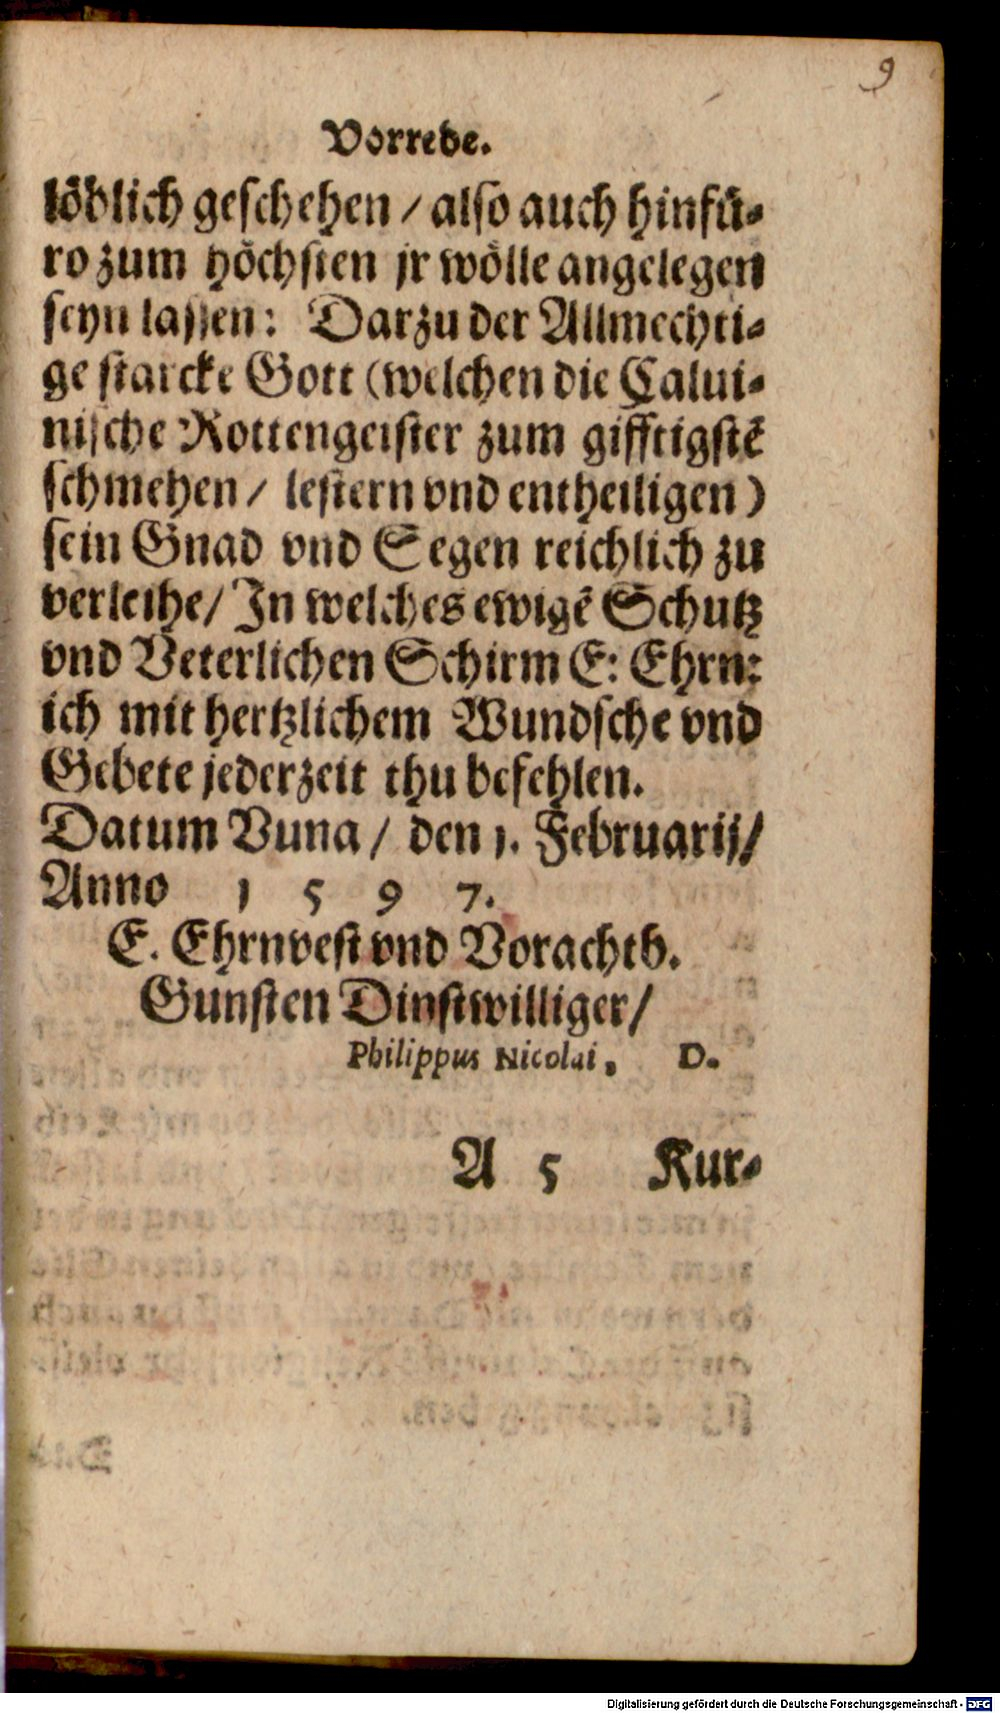 9
Vorrede.
löblich geschehen / also auch hinfü-
ro zum höchsten jr wölle angelegen
seyn lassen: Darzu der Allmechti-
ge starcke Gott (welchen die Calui-
nische Rottengeister zum gifftigstē
schmehen / lestern vnd entheiligen)
sein Gnad vnd Segen reichlich zu
verleihe / In welches ewigē Schutz
vnd Veterlichen Schirm E: Ehrn:
ich mit hertzlichem Wundsche vnd
Gebete jederzeit thu befehlen.
Datum Vuna / den 1. Februarij /
Anno 1 5 9 7.
E. Ehrnvest vnd Vorachtb.
Gunsten Dinstwilliger /
Philippus Nicolai, D.
A 5 Kur-
Digitalisierung gefördert durch die Deutsche Forschungsgemeinschaft - DFG